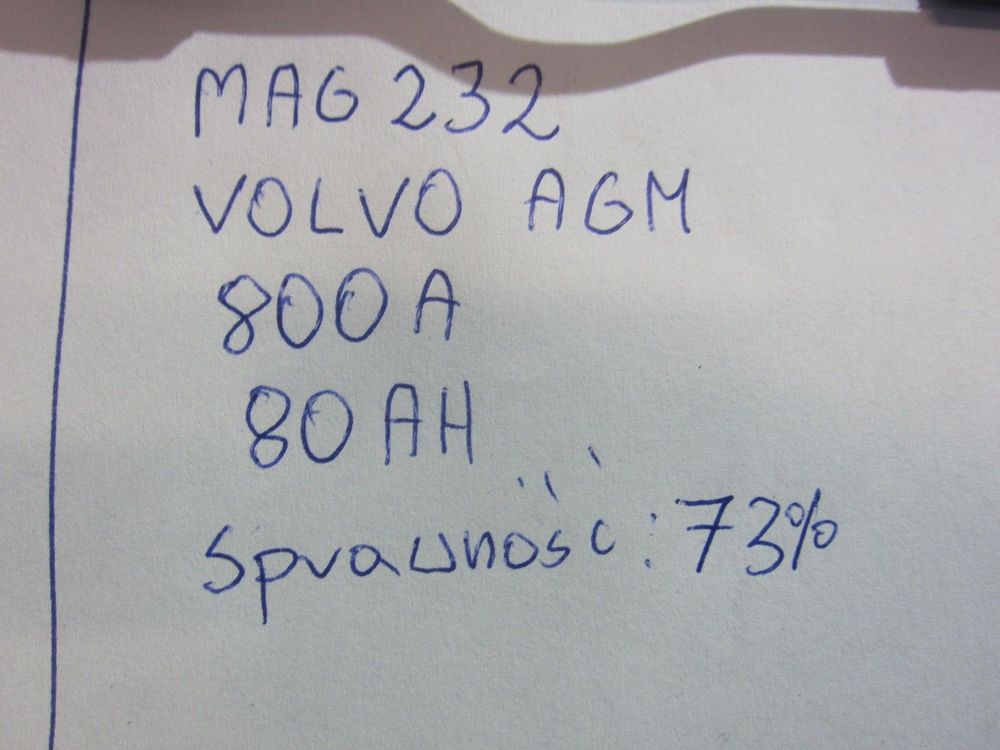 MAG 232
VOLVO AGM
800 A
80 AH
Sprawność: 73%